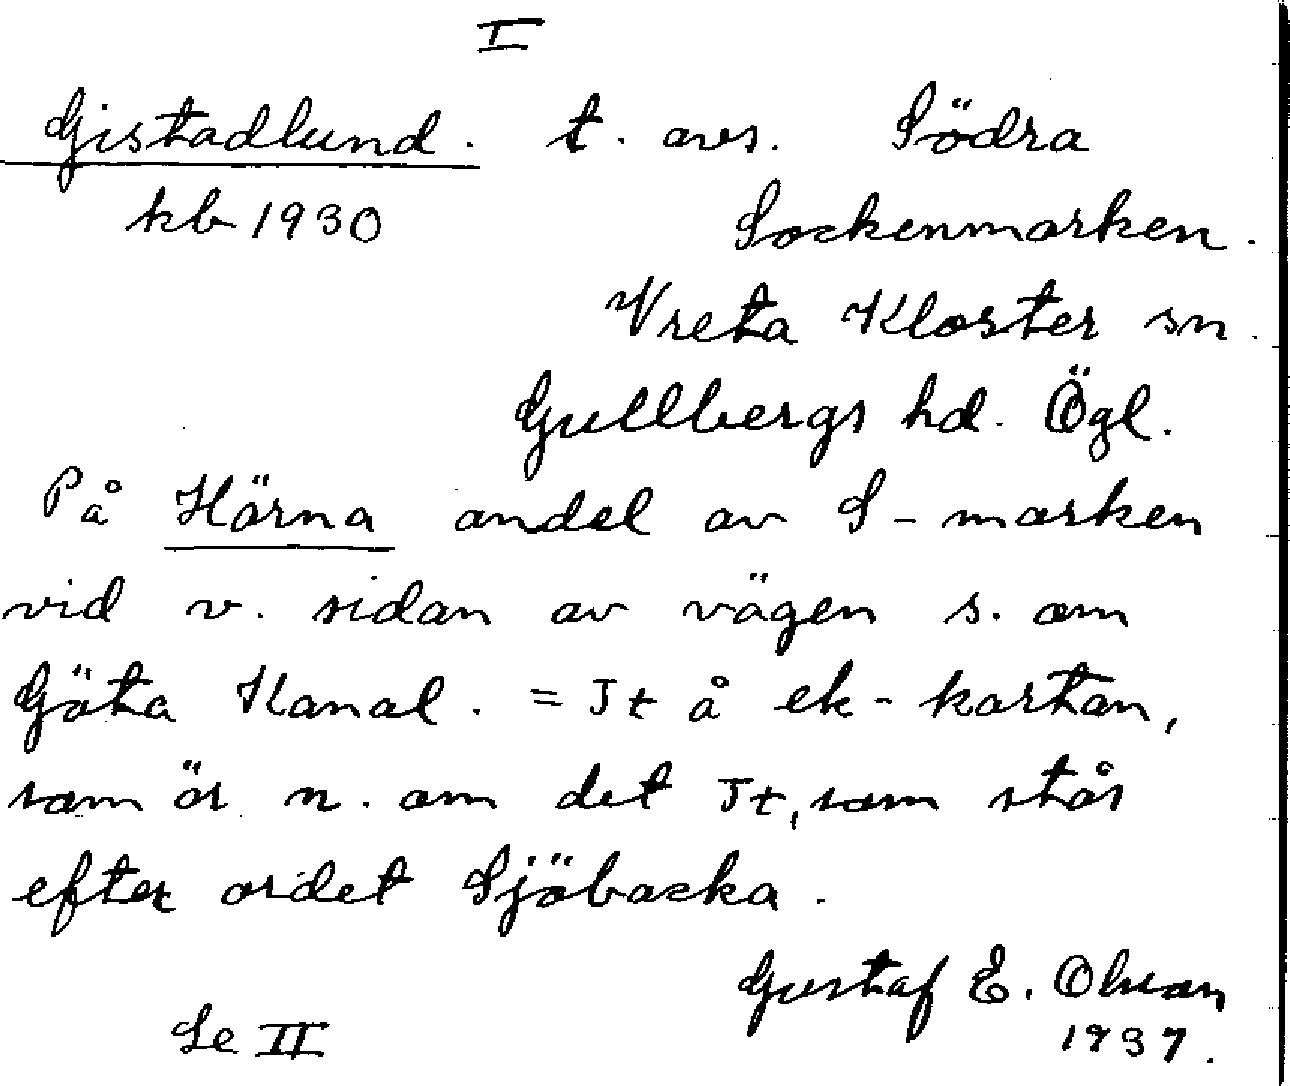 I
Gistadlund. t. avs. Södra
kb 1930 Sockenmarken.
Vreta Kloster sn.
Gullbergs hd. Ögl.
På Härna andel av S-marken
vid v. sidan av vägen s. om
Göta Kanal. = Jt å ek-kartan,
som är n. om det Jt, som står
efter ordet Sjöbacka.
Gustaf E. Olsson
1937.
Se II